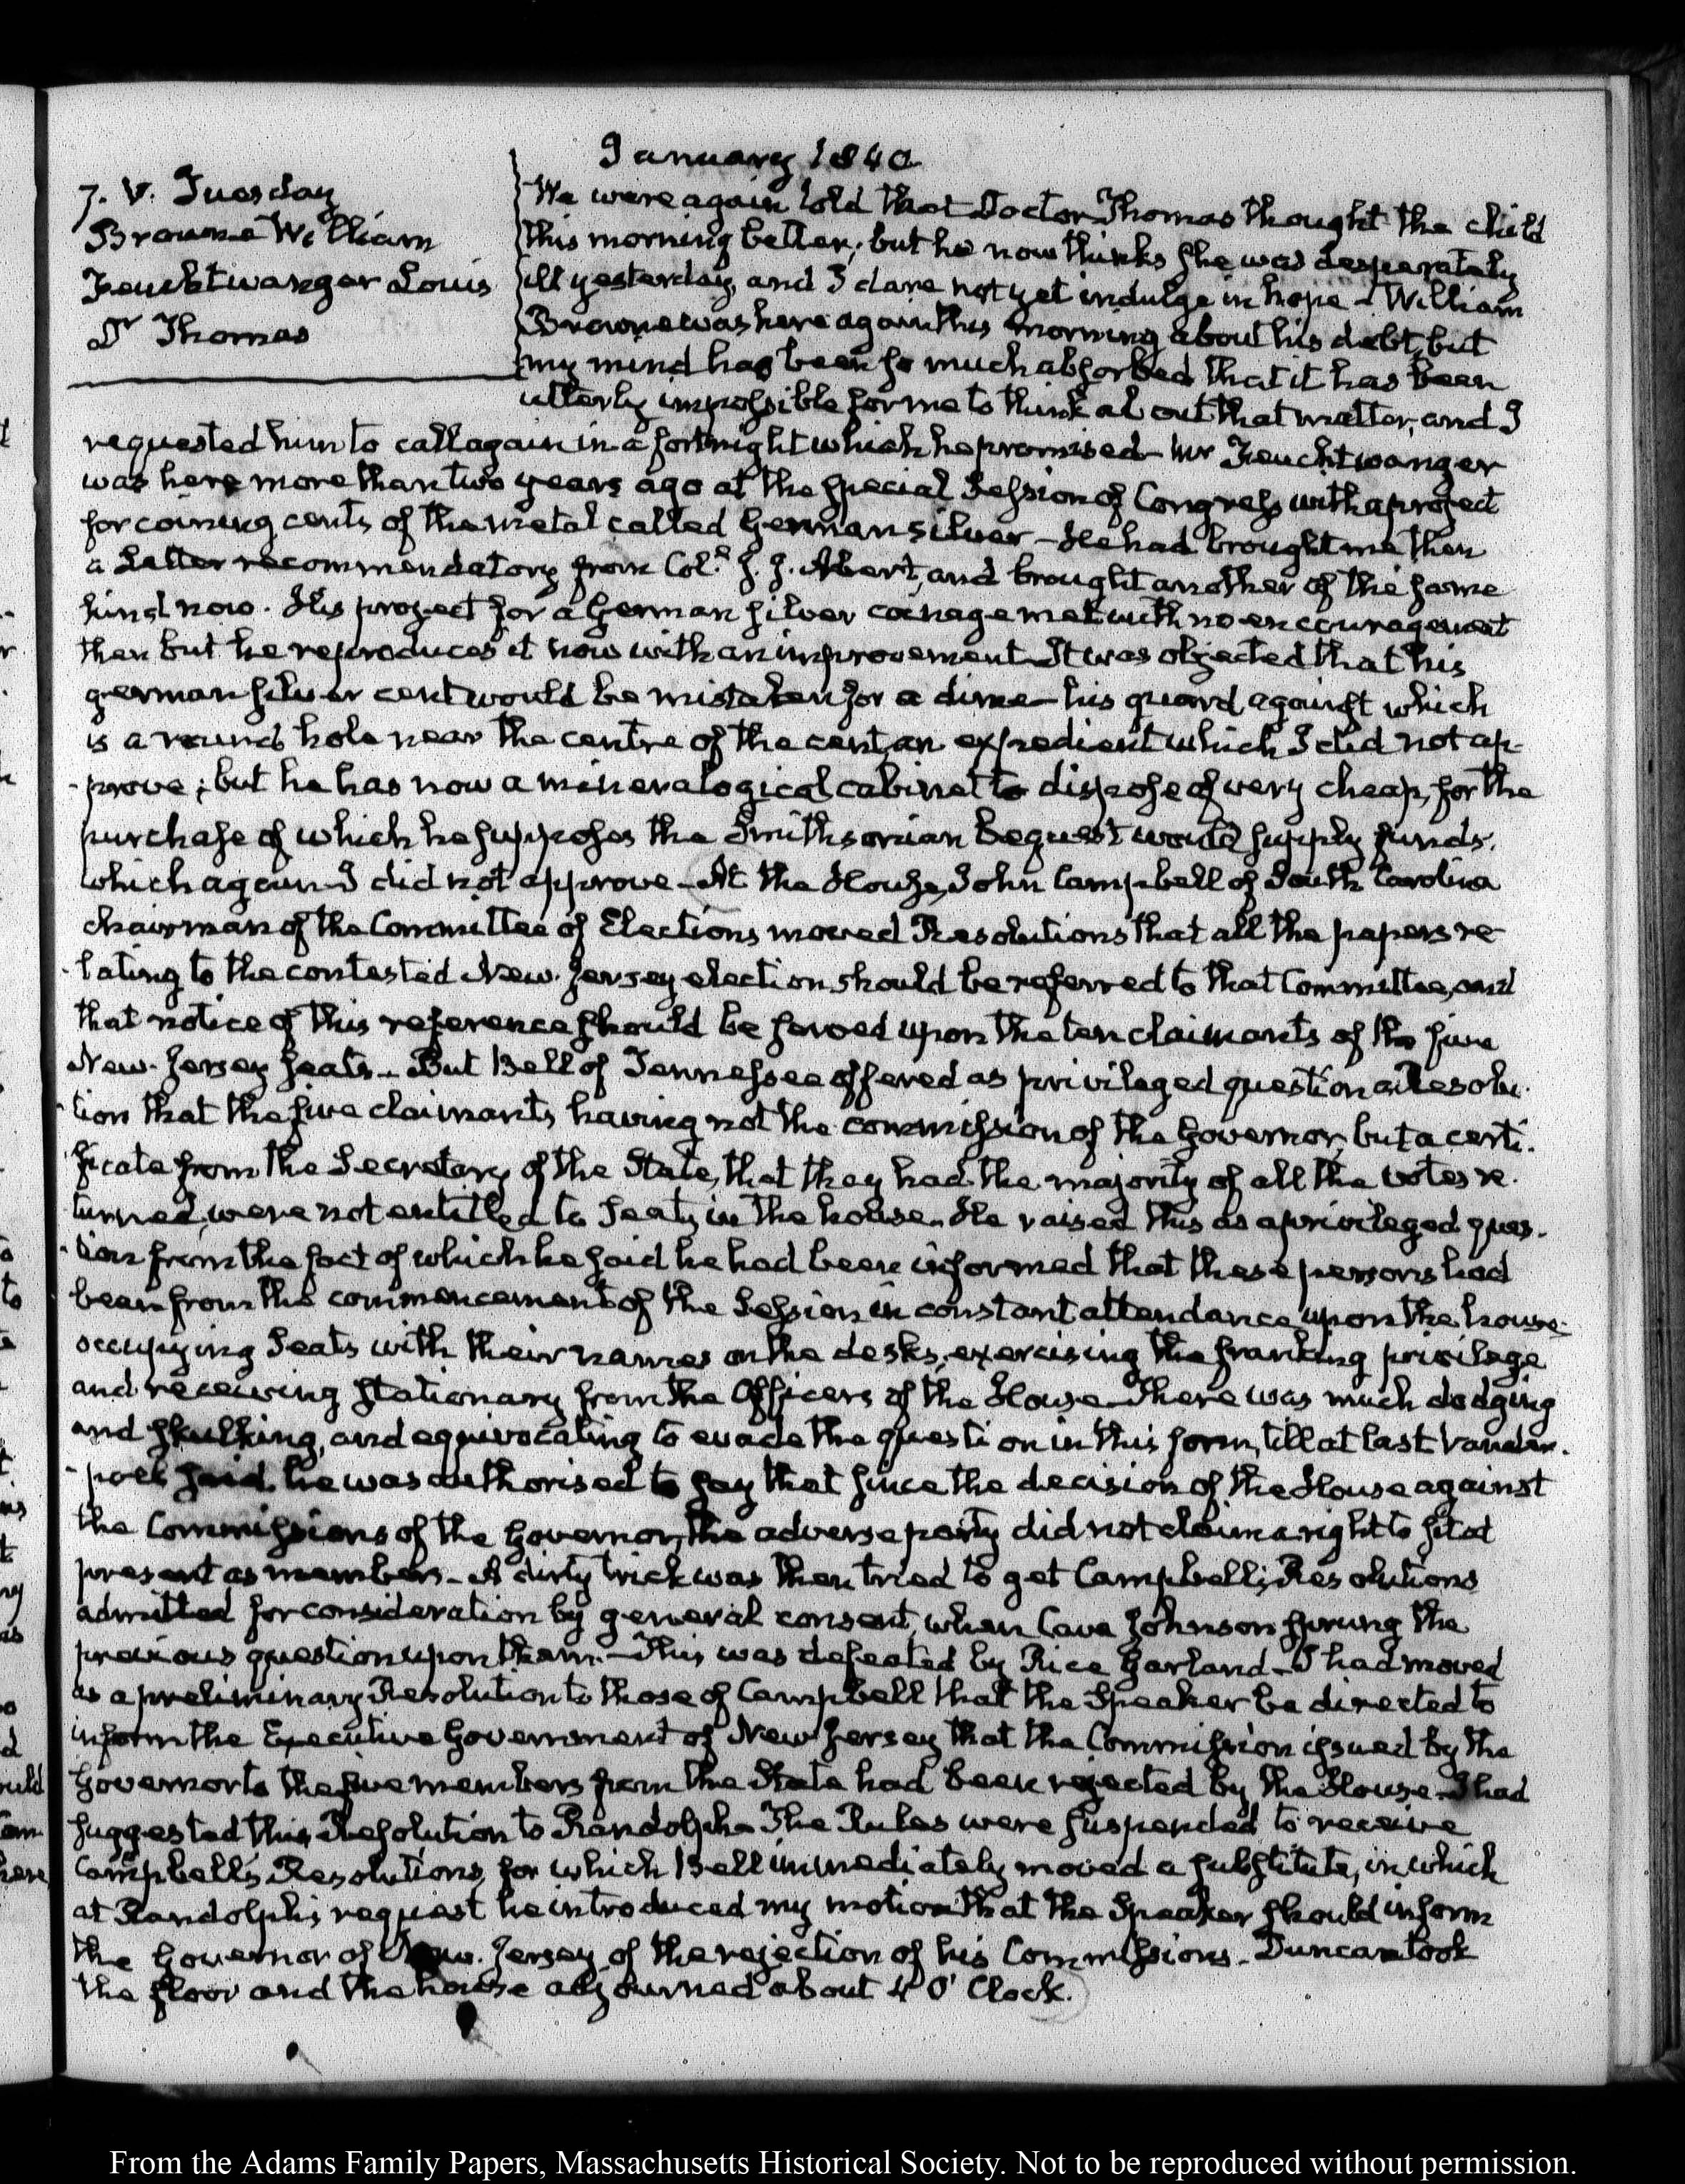 January 1840
7. V. Tuesday
Browne William
Feuchtwanger Louis
Dr Thomas
We were again told that Doctor Thomas thought the child
this morning better; but he now thinks she was desperately
ill yesterday, and I dare not yet indulge in hope – William
Browne was here again this morning about his debt, but
my mind has been so much absorbed that it has been
utterly impossible for me to think about that matter, and I
requested him to call again in a fortnight which he promised – Mr Feuchtwanger
was here more than two years ago at the special Session of Congress with a project
for coining cents of the metal called German silver – He had brought me then
a Letter recommendatory from Coll. J. J. Abert, and brought another of the same
kind now. His project for a German silver coinage met with no encouragement
then but he reproduces it now with an improvement – It was objected that his
german silver cent would be mistaken for a dime – his guard against which
is a round hole near the centre of the cent, an expedient which I did not ap-
-prove; but he has now a mineralogical cabinet to dispose of very cheap, for the
purchase of which he supposes the Smithsonian bequest would supply funds.
which again I did not approve – At the House, John Campbell of South Carolina
chairman of the Committee of Elections moved Resolutions that all the papers re-
-lating to the contested New-Jersey election should be referred to that Committee, and
that notice of this reference should be served upon the ten claimants of the five
New-Jersey seats – But Bell of Tennessee offered as privileged question a Resolu-
-tion that the five claimants, having not the commission of the Governor, but a certi-
-ficate from the Secretary of the State, that they had the majority of all the votes re-
turned, were not entitled to Seats in the house. He raised this as a privileged ques-
-tion from the fact of which he said he had been informed that these persons had
been from the commencement of the Session in constant attendance upon the house
occupying Seats with their names on the desks, exercising the franking privilege
and receiving stationary from the Officers of the House – There was much dodging
and skulking, and equivocating to evade the question in this form, till at last Vander-
-poel said he was authorised to say that since the decision of the House against
the Commissions of the Governor, the adverse party did not claim a right to sit at
present as members – A dirty trick was then tried to get Campbell's Resolutions
admitted for consideration by general consent, when Cave Johnson sprung the
previous question upon them – This was defeated by Rice Garland – I had moved
as a preliminary Resolution to those of Campbell that the Speaker be directed to
inform the Executive Government of New Jersey that the Commission issued by the
Governor to the five members from the State had been rejected by the House – I had
suggested this Resolution to Randolph – The Rules were suspended to receive
Campbell's Resolutions, for which Bell immediately moved a substitute, in which
at Randolph's request he introduced my motion that the Speaker should inform
the Governor of New-Jersey of the rejection of his Commissions – Duncan took
the floor and the house adjourned about 4 O'Clock.
From the Adams Family Papers, Massachusetts Historical Society. Not to be reproduced without permission.